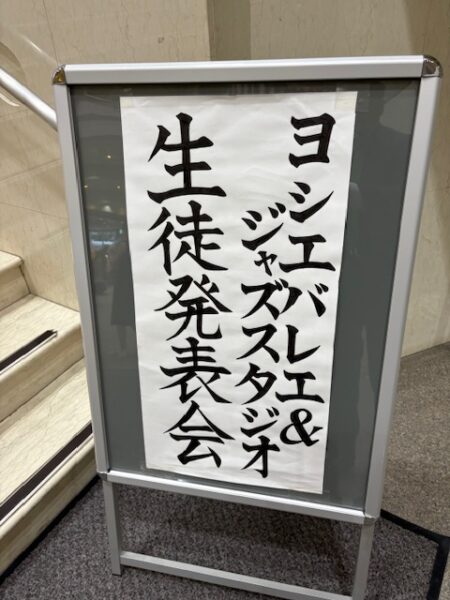 ヨシエバレエ&
ジャズスタジオ
生徒発表会